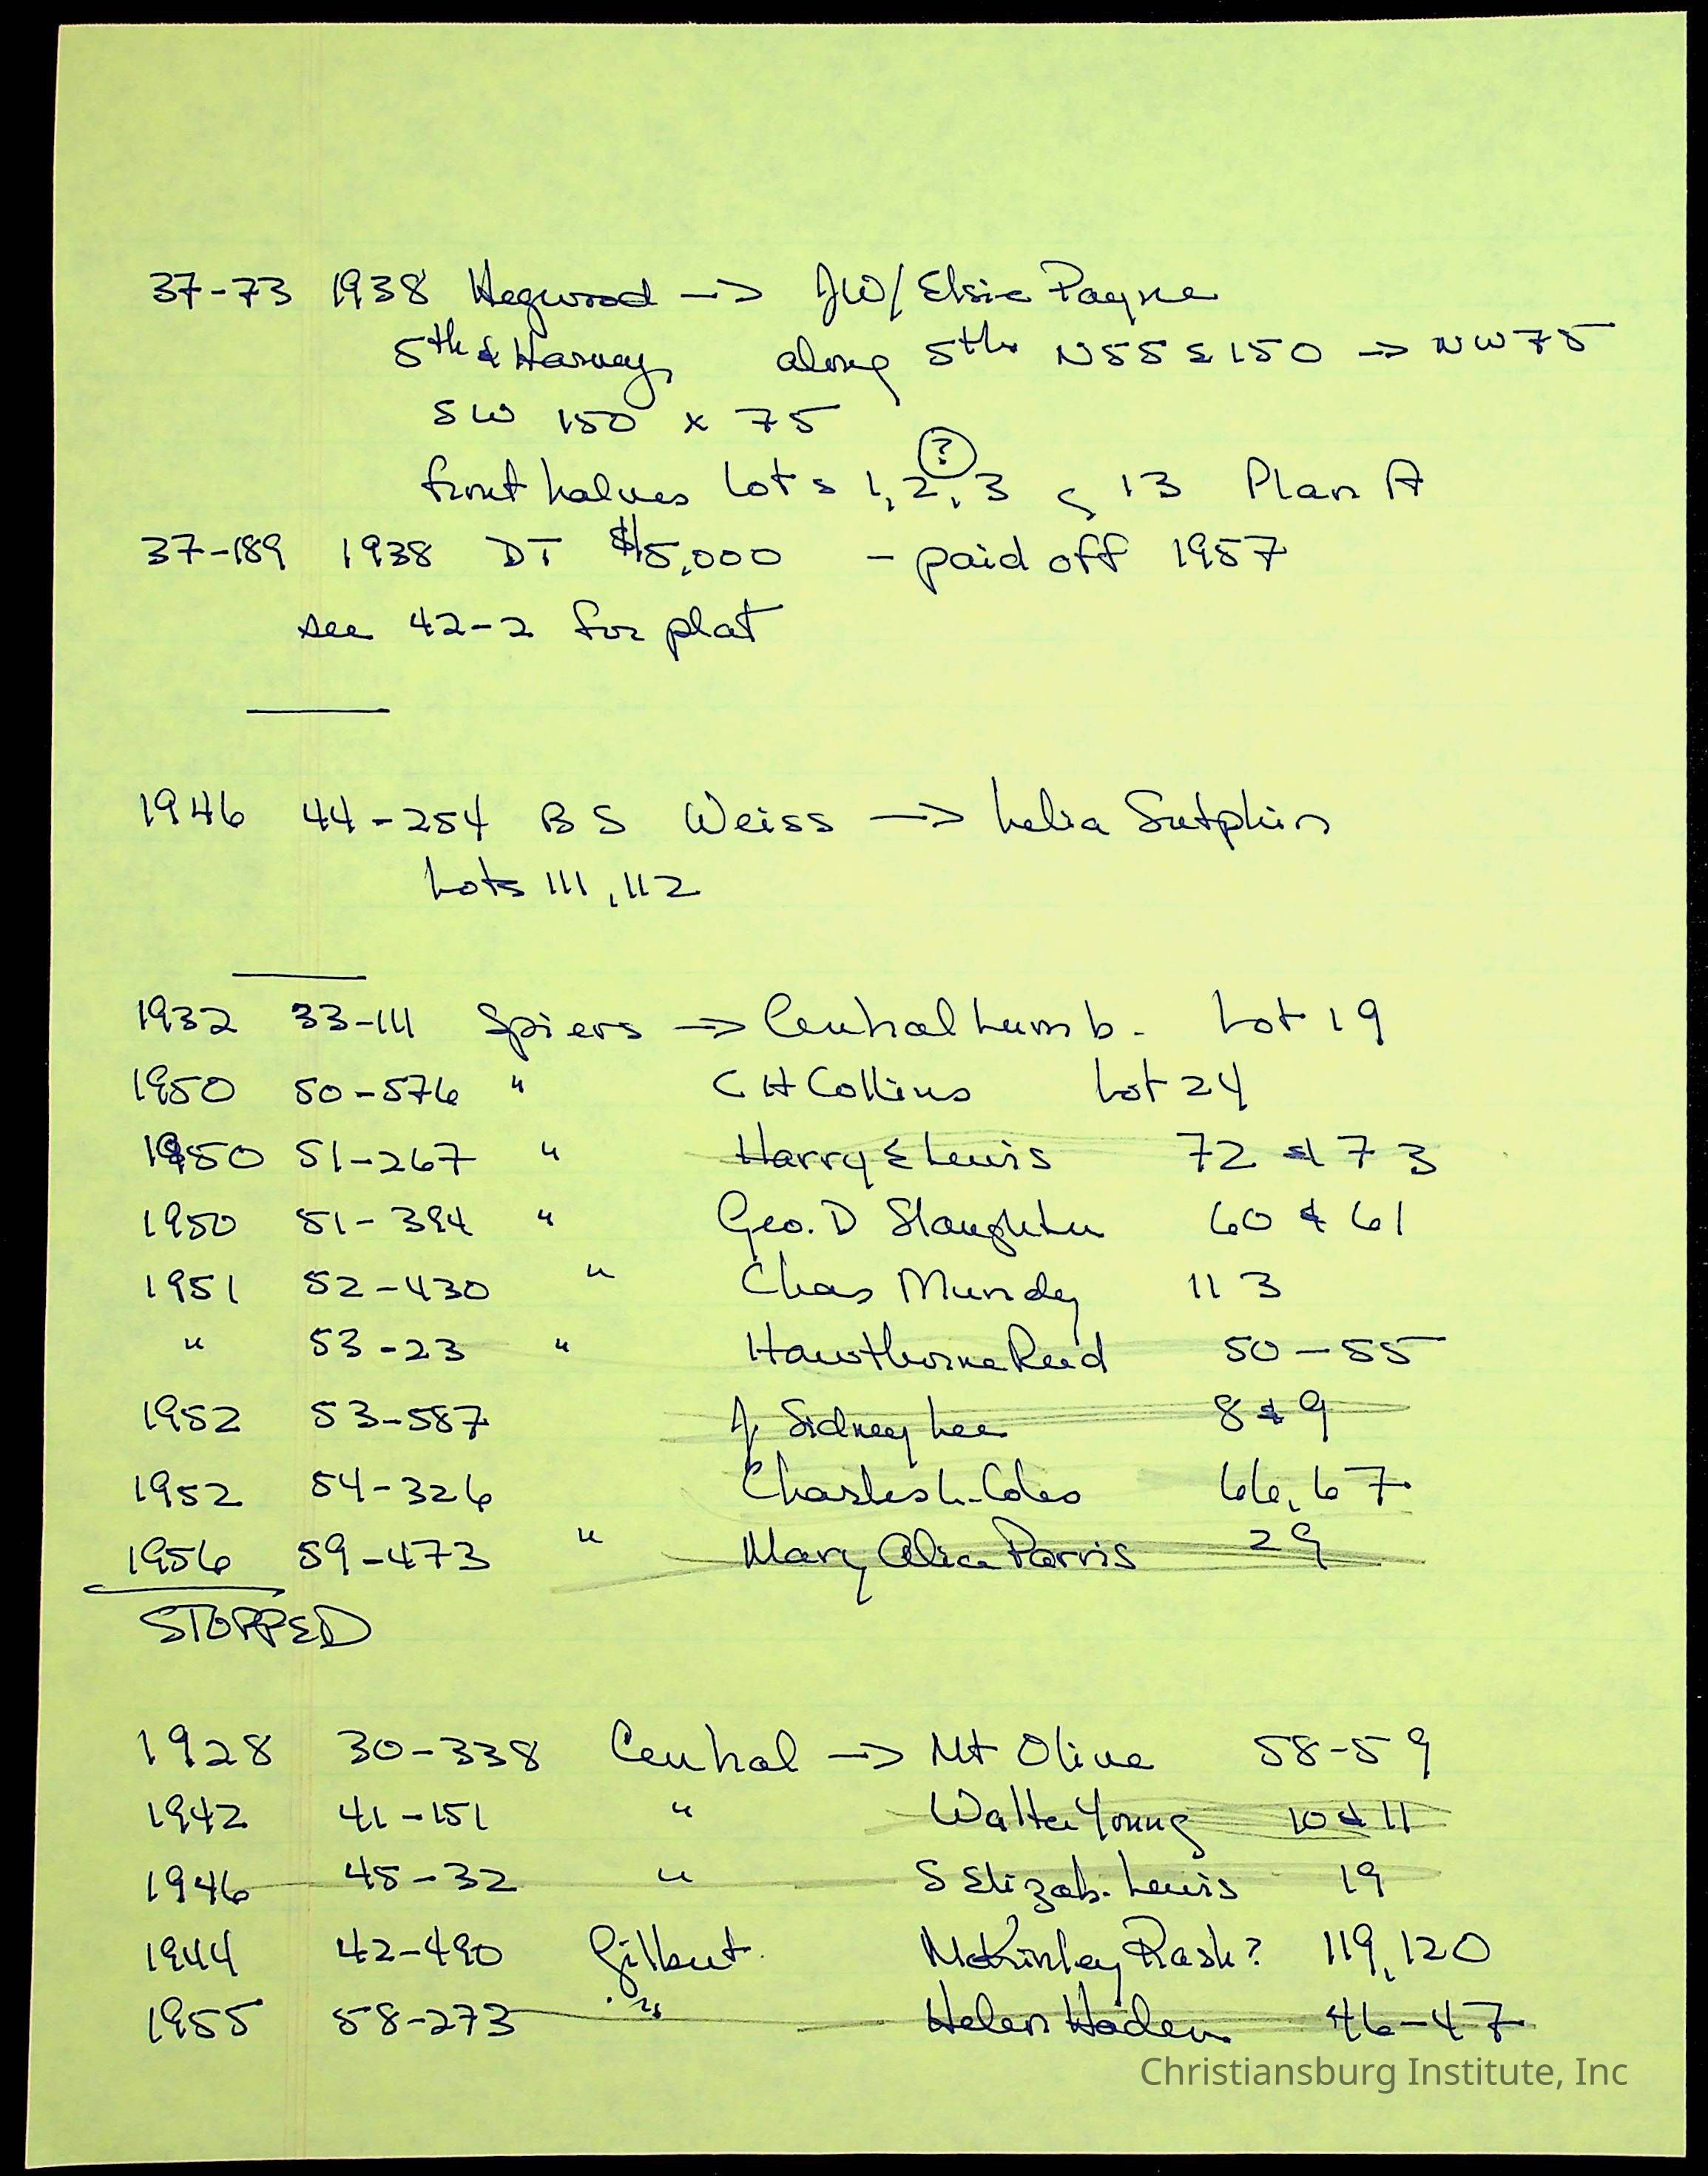 37-73 1938 Hegwood -> JW/Elsie Payne
5th & Harvey along 5th N55E150 -> NW75
SW 150 x 75
?
front halves Lots 1,2,3 13 Plan A
37-189 1938 DT $15,000 - paid off 1957
see 42-2 for plat
1946 44-254 BS Weiss -> Lelia Sutphin
Lots 111, 112
1932 33-111 Spiers -> Central Lumb. Lot 19
1950 50-576 " C H Collins Lot 24
1950 51-267 " Harry E Lewis 72 & 73
1950 51-394 " Geo. D Slaughter 60 & 61
1951 52-430 " Chas Mundy 113
" 53-23 " Hawthorne Reed 50-55
1952 53-587 J Sidney Lee 8 & 9
1952 54-326 Charles L. Coles 66, 67
1956 59-473 " Mary Alice Parris 29
STOPPED
1928 30-338 Central -> Mt Olive 58-59
1942 41-151 " Walter Young 10 & 11
1946 45-32 " S Elizab. Lewis 19
1944 42-490 Gilbert McKinley Rash? 119, 120
1955 58-273 " Helen Haden 46-47
Christiansburg Institute, Inc